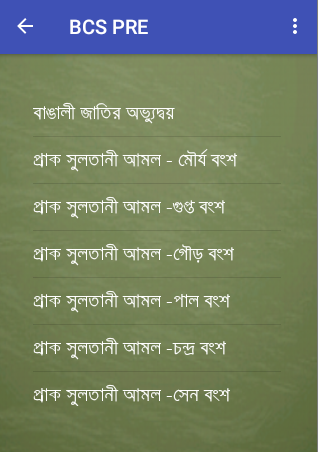 BCS PRE
বাঙালী জাতির অভ্যুদ্বয়
প্রাক সুলতানী আমল - মৌর্য বংশ
প্রাক সুলতানী আমল -গুপ্ত বংশ
প্রাক সুলতানী আমল -গৌড় বংশ
প্রাক সুলতানী আমল -পাল বংশ
প্রাক সুলতানী আমল -চন্দ্র বংশ
প্রাক সুলতানী আমল -সেন বংশ